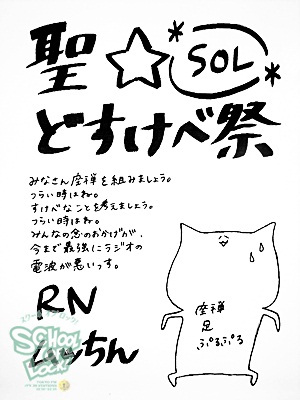 聖☆SOL
どすけべ祭
みなさん座禅を組みましょう。
つらい時はね。
すけべなことを考えましょう。
つらい時はね。
みんなの念のおかげが、
今まで最強にラジオの
電波が悪いっす。
RN
ムッちん
座禅
足
ぷるぷる
SCHOOL
OF LOCK!